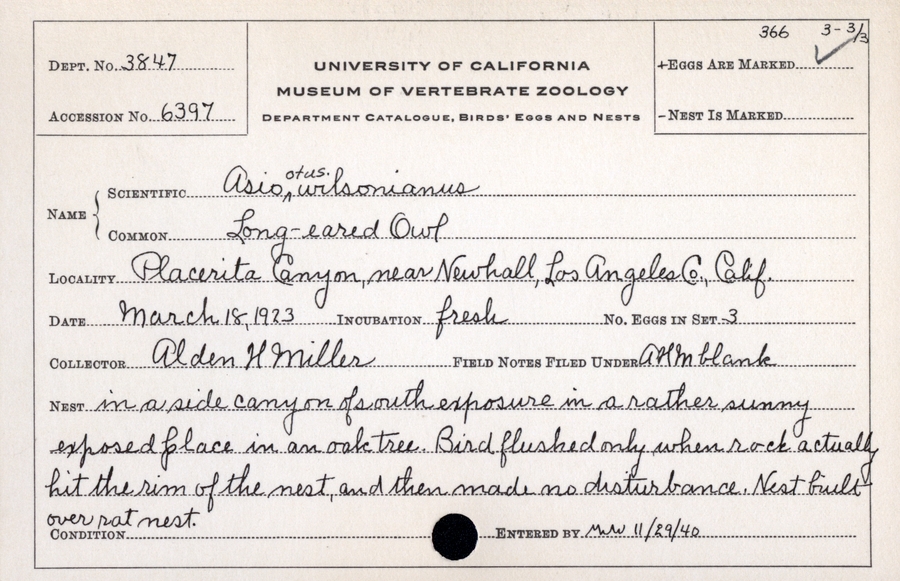 366 3-3/3
DEPT. No. 3847
UNIVERSITY OF CALIFORNIA
+EGGS ARE MARKED ✓
MUSEUM OF VERTEBRATE ZOOLOGY
ACCESSION No. 6397
DEPARTMENT CATALOGUE, BIRDS' EGGS AND NESTS
-NEST IS MARKED
NAME
SCIENTIFIC Asio otus. wilsonianus
COMMON Long-eared Owl
LOCALITY Placerita Canyon, near Newhall, Los Angeles Co., Calif.
DATE March 18, 1923 INCUBATION fresh No. EGGS IN SET 3
COLLECTOR Alden H Miller FIELD NOTES FILED UNDER AHM blank
NEST in a side canyon of south exposure in a rather sunny
exposed place in an oak tree. Bird flushed only when rock actually
hit the rim of the nest, and then made no disturbance. Nest built
over rat nest.
CONDITION ENTERED BY MW 11/29/40